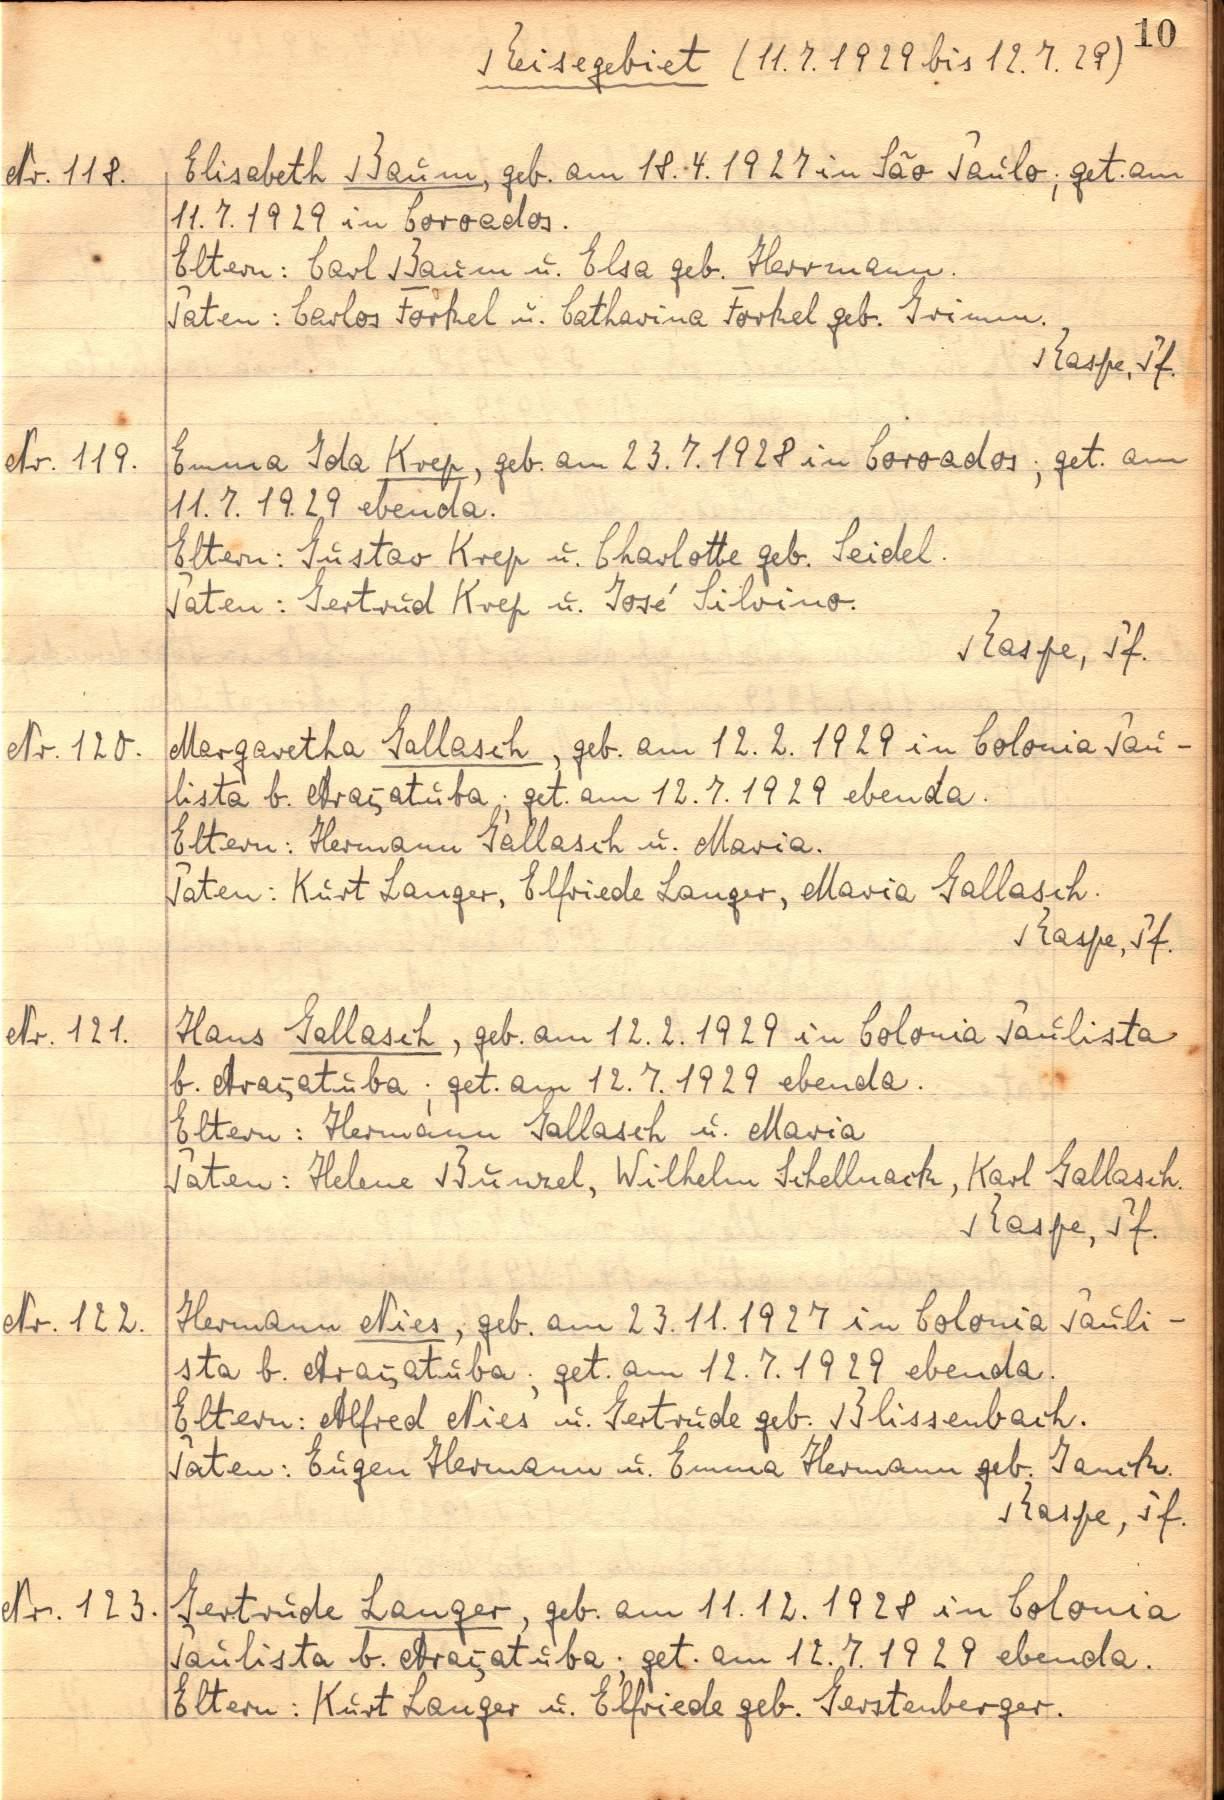 10
Reisegebiet (11.7.1929 bis 12.7.29)
Nr. 118. Elisabeth Baum, geb. am 18.4.1927 in São Paulo; get. am
11.7.1929 in Coroados.
Eltern: Carl Baum u. Elsa geb. Herrmann.
Paten: Carlos Forkel u. Catharina Forkel geb. Grimm.
Raspe, Pf.
Nr. 119. Emma Ida Krep, geb. am 23.7.1928 in Coroados; get. am
11.7.1929 ebenda.
Eltern: Gustav Krep u. Charlotte geb. Seidel.
Paten: Gertrud Krep u. José Silvino.
Raspe, Pf.
Nr. 120. Margaretha Gallasch, geb. am 12.2.1929 in Colonia Pau-
lista b. Araçatuba; get. am 12.7.1929 ebenda.
Eltern: Hermann Gallasch u. Maria.
Paten: Kurt Langer, Elfriede Langer, Maria Gallasch.
Raspe, Pf.
Nr. 121. Hans Gallasch, geb. am 12.2.1929 in Colonia Paulista
b. Araçatuba; get. am 12.7.1929 ebenda.
Eltern: Hermann Gallasch u. Maria
Paten: Helene Bunzel, Wilhelm Schellnack, Karl Gallasch.
Raspe, Pf.
Nr. 122. Hermann Nies, geb. am 23.11.1927 in Colonia Pauli-
sta b. Araçatuba; get. am 12.7.1929 ebenda.
Eltern: Alfred Nies u. Gertrude geb. Blissenbach.
Paten: Eugen Hermann u. Emma Hermann geb. Janck.
Raspe, Pf.
Nr. 123. Gertrude Langer, geb. am 11.12.1928 in Colonia
Paulista b. Araçatuba; get. am 12.7.1929 ebenda.
Eltern: Kurt Langer u. Elfriede geb. Gerstenberger.